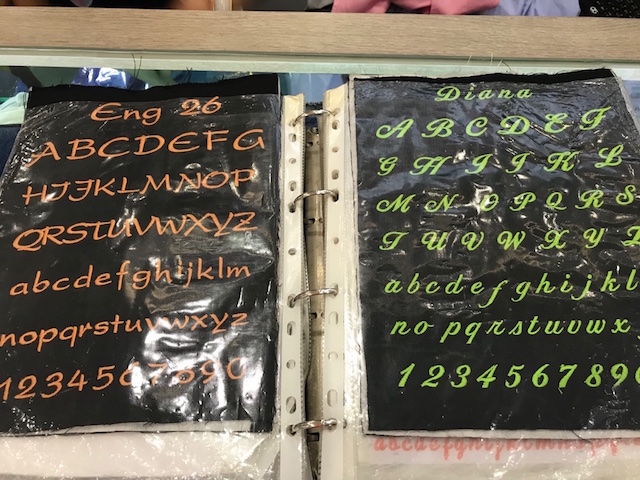 Eng 26
ABCDEFG
HIJKLMNOP
QRSTUVWXYZ
abcdefghijklm
nopqrstuvwxyz
1234567890
Diana
ABCDEF
GHIJKL
MNOPQRS
TUVWXYZ
abcdefghijkl
no pqrstuvwxy
1234567890